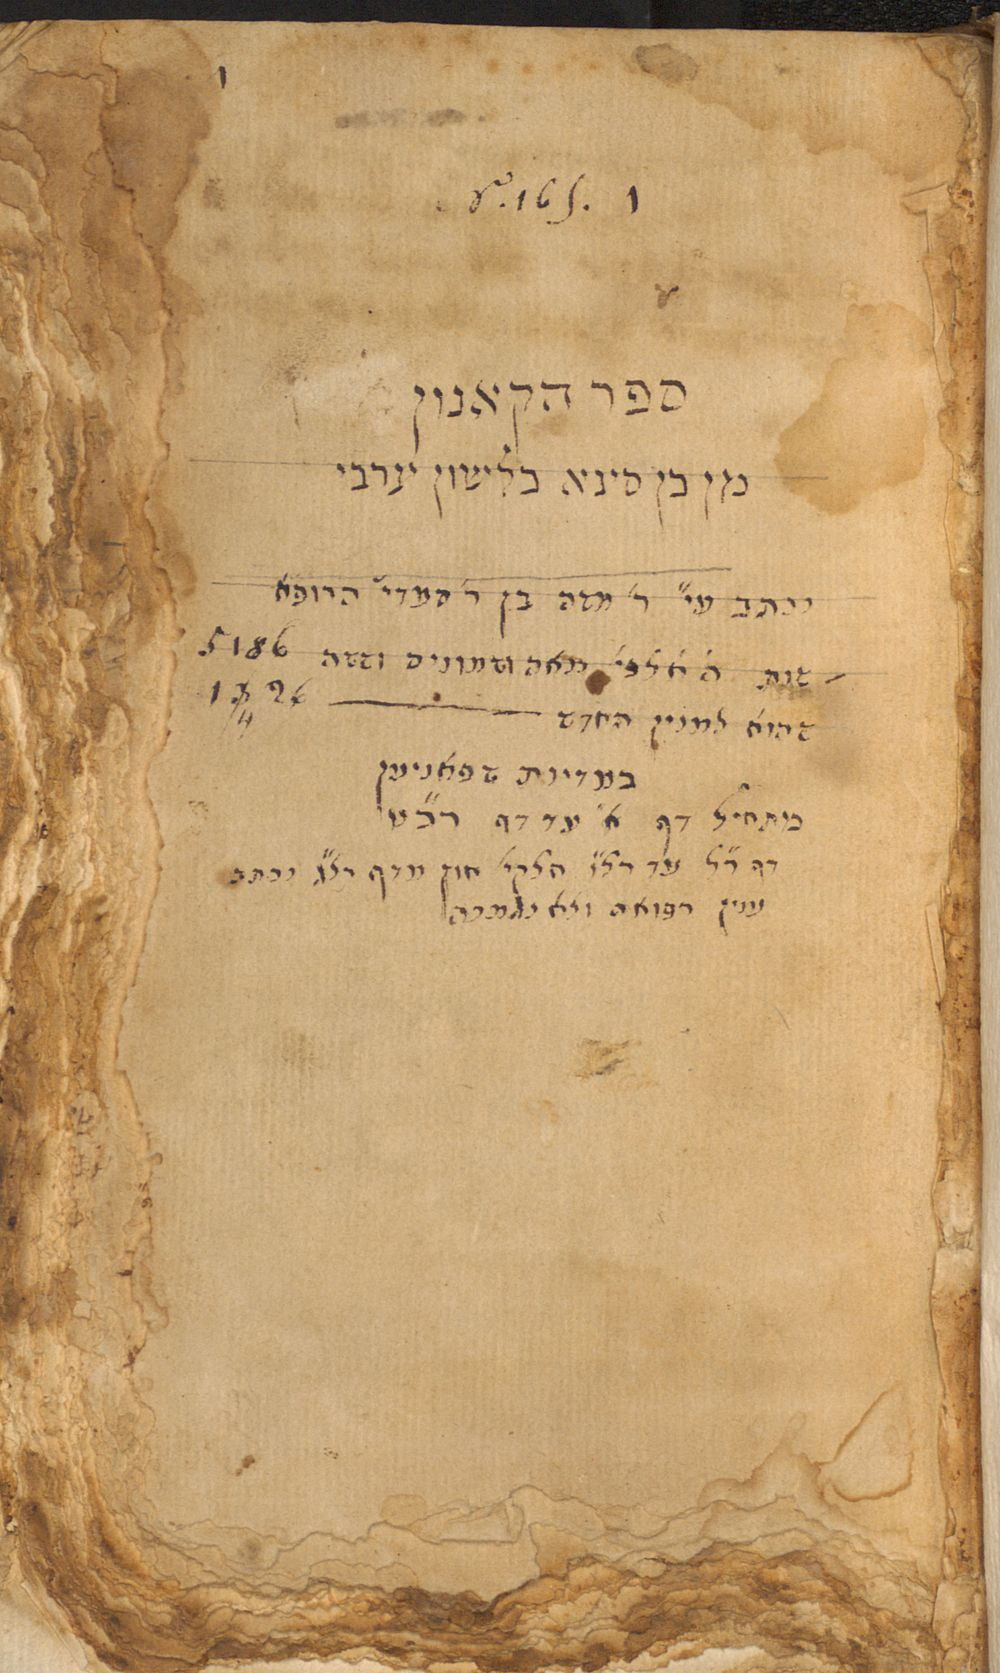 ספר הקאנון
מן בן סינא בלשון ערבי
נכתב ע״י ר׳ משה בן ר׳ סעדי׳ הרופא
שנת ה׳ אלפי׳ מאה ושמונים וששה 5186
שהוא למנין החדש 1426
במדינת שפאניען
מתחיל דף א׳ עד דף
דף ר״ל עד רל״ג חלקי׳ חוץ מדף רל״ג נכתב
ענין רפואה ולא נגמרה